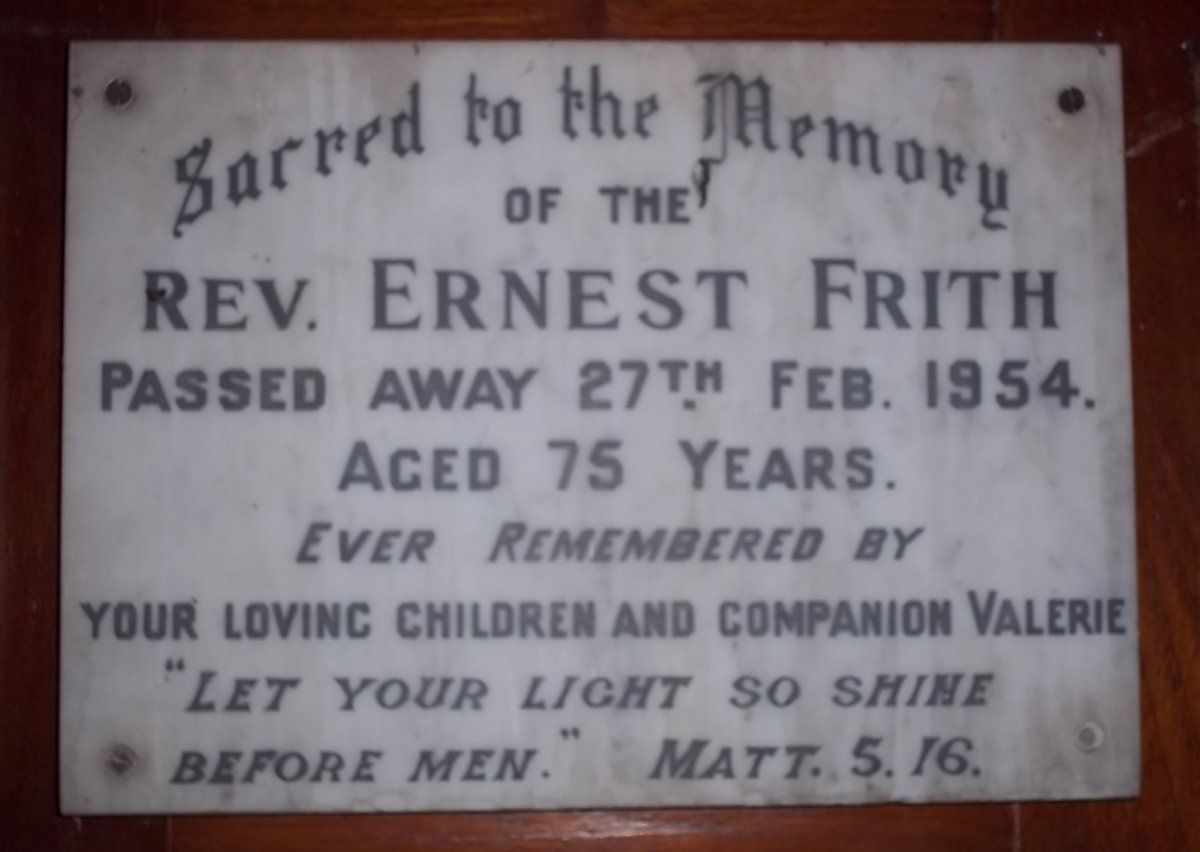 Sacred to the Memory
OF THE
REV. ERNEST FRITH
PASSED AWAY 27TH FEB. 1954.
AGED 75 YEARS.
EVER REMEMBERED BY
YOUR LOVING CHILDREN AND COMPANION VALERIE
"LET YOUR LIGHT SO SHINE
BEFORE MEN." MATT. 5. 16.